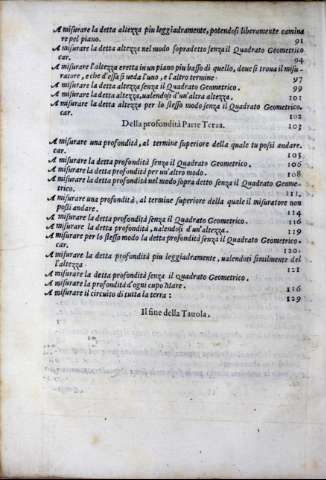 A misurare la detta altezza piu leggiadramente, potendosi liberamente camina
re pel piano. 91
A misurare la detta altezza nel modo sopradetto senza il Quadrato Geometrico
car. 94
A misurare l'altezza eretta in un piano piu basso di quello, doue si troua il misu-
ratore, e che d'essa si ueda l'uno, e l'altro termine 97
A misurare la detta altezza senza il Quadrato Geometrico. 99
A misurare la detta altezza, ualendosi d'un'altra altezza. 101
A misurare la detta altezza per lo stesso modo senza il Quadrato Geometrico.
car. 102
Della profondità Parte Terza. 103
A misurare una profondità, al termine superiore della quale tu possi andare.
car. 105
A misurare la detta profondità senza il Quadrato Geometrico. 106
A misurare la detta profondità per un'altro modo. 108
A misurare la detta profondità nel modo sopra detto senza il Quadrato Geome-
trico. 111
A misurare una profondità, al termine superiore della quale il misuratore non
possi andare. 114
A misurare la detta profondità senza il Quadrato Geometrico. 116
A misurare la detta profondità, ualendosi d'un'altezza. 119
A misurare per lo stesso modo la detta profondità senza il Quadrato Geometrico
car. 120
A misurare la detta profondità piu leggiadramente, ualendoti similmente del
l'altezza 121
A misurare la detta profondità senza il Quadrato Geometrico.
A misurare la profondità d'ogni cupo Mare. 126
A misurare il circuito di tutta la terra: 129
Il fine della Tauola.